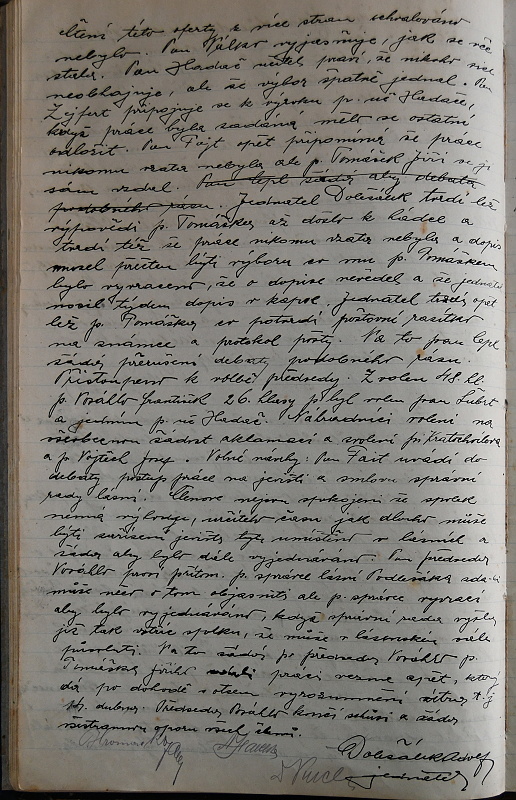 čtení této oferty z více stran schvalováno
nebylo. Pan Válko vyjasňuje, jak se věc
stala. Pan Hadač učitel praví, že nikoho více
neobhajuje, ale že výbor špatně jednal. Pan
Zejfert připojuje se k výroku p. uč Hadače,
když práce byla zadána měli se ostatní
odložit. Pan Fojt opět připomíná že práce
nikomu vzata nebyla ale p. Tomášek Jiří se jí
sám vzdal. Pan lepl žádá aby debata
podobného rázu. Jednatel Doležálek tvrdí lež
výpovědi p. Tomáška až došlo k hádce a
tvrdí též že práce nikomu vzata nebyla a dopis
musel přečten býti výboru co mu p. Tomáškem
bylo vyvraceno, že o dopise nevěděl a že jednatel
nosil týden dopis v kapse. Jednatel tvrdí opět
lež p. Tomáška co potvrdí poštovní razítko
na známce a protokol pošty. Na to pan lepl
žádá přerušení debaty podobného rázu.
Přistoupeno k volbě předsedy. Zvolen 48 hl.
p. Voráhlo František 26. hlasy p. byl volen pan Šubrt
a jedním p. uč Hadač. Náhradníci voleni na
všeobecnou žádost aklamací a zvoleni p. Kratochvílová
a p. Vojtěch Josef. Volné návrhy: Pan Fait uvádí do
debaty postup práce na jevišti a smlouvu správní
rady lázní. Členové nejsou spokojeni že spolek
nemá výhodu, určitého času jak dlouho může
býti zařízení jeviště, tyto umístěno v lázních a
žádá aby bylo dále vyjednáváno. Pan předseda
Voráhlo prosí přítom. p. správce lázní Podlešáka zda-li
může něco o tom objasniti ale p. správce vyvrací
aby bylo vyjednáváno, když správní rada vyšla
již tak vstříc spolku, že může v lázeňském sále
působiti. Na to žádá p. předseda Voráhlo p.
Tomáška Jiřího práci vezme zpět, který
dá po dohodě s otcem vyrozumění zítra t. j
14. dubna. Předseda Voráhlo končí schůzi a žádá
všestrannou oporu všech členů.
Doležálek Adolf
jednatel